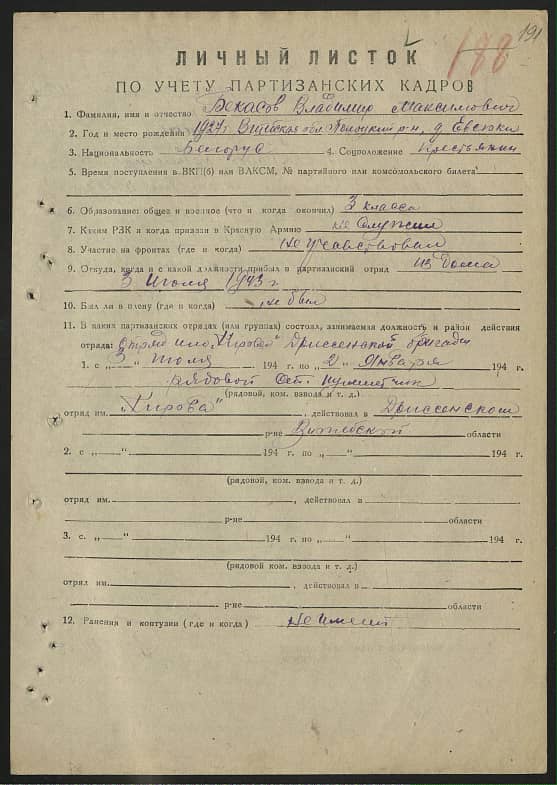 188
191
ЛИЧНЫЙ ЛИСТОК
ПО УЧЕТУ ПАРТИЗАНСКИХ КАДРОВ
1. Фамилия, имя и отчество Бекасов Владимир Максимович
2. Год и место рождения 1927 г. Витебская обл. Полоцкий р-н, д. Евсюки
3. Национальность Белорус 4. Соцположение крестьянин
5. Время поступления в ВКП(б) или ВЛКСМ, № партийного или комсомольского билета
6. Образование: общее и военное (что и когда окончил) 3 класса
7. Каким РЗК и когда призван в Красную Армию не служил
8. Участие на фронтах (где и когда) не участвовал
9. Откуда, когда и с какой должности прибыл в партизанский отряд из дома
3 июля 1943 г
10. Был ли в плену (где и когда) не был
11. В каких партизанских отрядах (или группах) состоял, занимаемая должность и район действия
отряда: Отряд им. „Кирова" Дриссенской бригады
1. с „3" июля 194 г. по „2" января 194 г.
рядовой пулеметчик
(рядовой, ком. взвода и т. д.)
отряд им. „Кирова", действовал в Дриссенском
р-не Витебской области
2. с „ " 194 г. по „ " 194 г.
(рядовой, ком. взвода и т. д.)
отряд им. , действовал в
р-не области
3. с „ " 194 г. по „ " 194 г.
(рядовой ком. взвода и т. д.)
отряд им. , действовал в
р-не области
12. Ранения и контузии (где и когда) не имеет